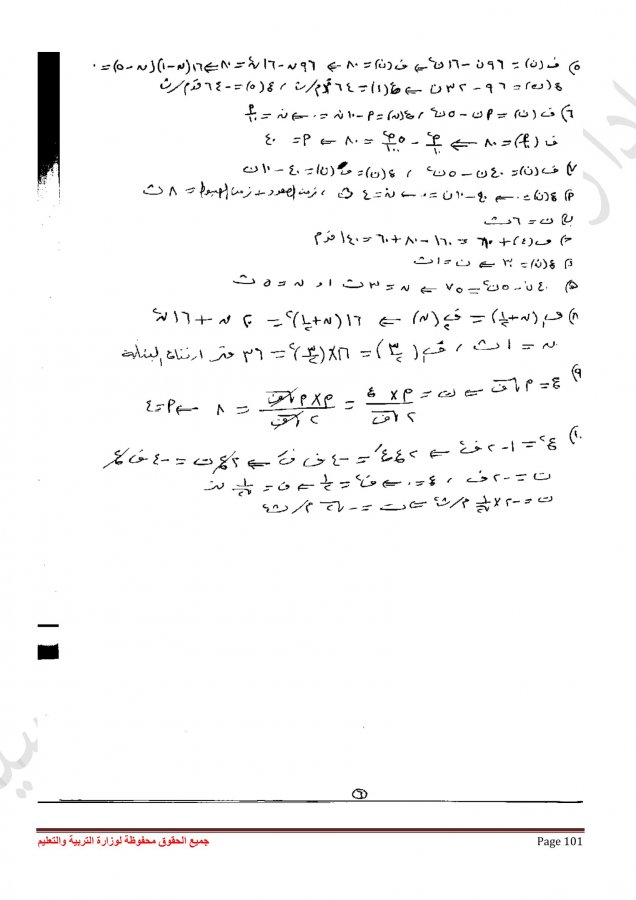 ٥) ف(ن) = ٩٦ن - ١٦ن² ، ف(ن) = ٨٠ ⇐ ٩٦ن - ١٦ن² = ٨٠ ⇐ ١٦(ن-١)(ن-٥) = ٠
ع(ن) = ٩٦ - ٣٢ن ⇐ ع(١) = ٦٤ قدم/ث ، ع(٥) = -٦٤ قدم/ث
٦) ف(ن) = ٢ن - ٥ن² ، ع(ن) = ٢ - ١٠ن = ٠ ⇐ ن = ٢/١٠
ف(٢/١٠) = ٨٠ ⇐ ٢²/١٠ - ٥٢²/١٠٠ = ٨٠ ⇐ ٢ = ٤٠
٧) ف(ن) = ٤٠ن - ٥ن² ، ع(ن) = ف(ن) = ٤٠ - ١٠ن
٢) ع(ن) = ٠ ⇐ ٤٠ - ١٠ن = ٠ ⇐ ن = ٤ ث ، زمن الصعود + زمن الهبوط = ٨ ث
ب) ن = ٦ ث
ج) ف(٤) + ٦٠ = ١٦٠ - ٨٠ + ٦٠ = ١٤٠ قدم
ع(ن) = ٣٠ ⇐ ن = ١ ث
٤٠ن - ٥ن² = ٧٥ ⇐ ن = ٣ ث او ن = ٥ ث
٨) ف(ن + ١/٢) = ف(ن) ⇐ ١٦(ن + ١/٢)² = ٢٠ن + ١٦ن²
ن = ١ ث ، ف(٣/٢) = ١٦ × (٣/٢)² = ٣٦ متر ارتفاع البناية
٩) ع = ٢√ف ⇐ ت = ٢ × ع / ٢√ف = ٢ × ٢√ف / ٢√ف = ٨ ⇐ ٢ = ٤
١٠) ع² = ١ - ٢ف² ⇐ ٢ع ع = -٤ف ف ⇐ ٢ع ت = -٤ف ع
ت = -٢ف ، ع = ٠ ⇐ ف² = ١/٢ ⇐ ف = ١/√٢ متر
ت = -٢ × ١/√٢ م/ث² ⇐ ت = -√٢ م/ث²
٦
جميع الحقوق محفوظة لوزارة التربية والتعليم
Page 101